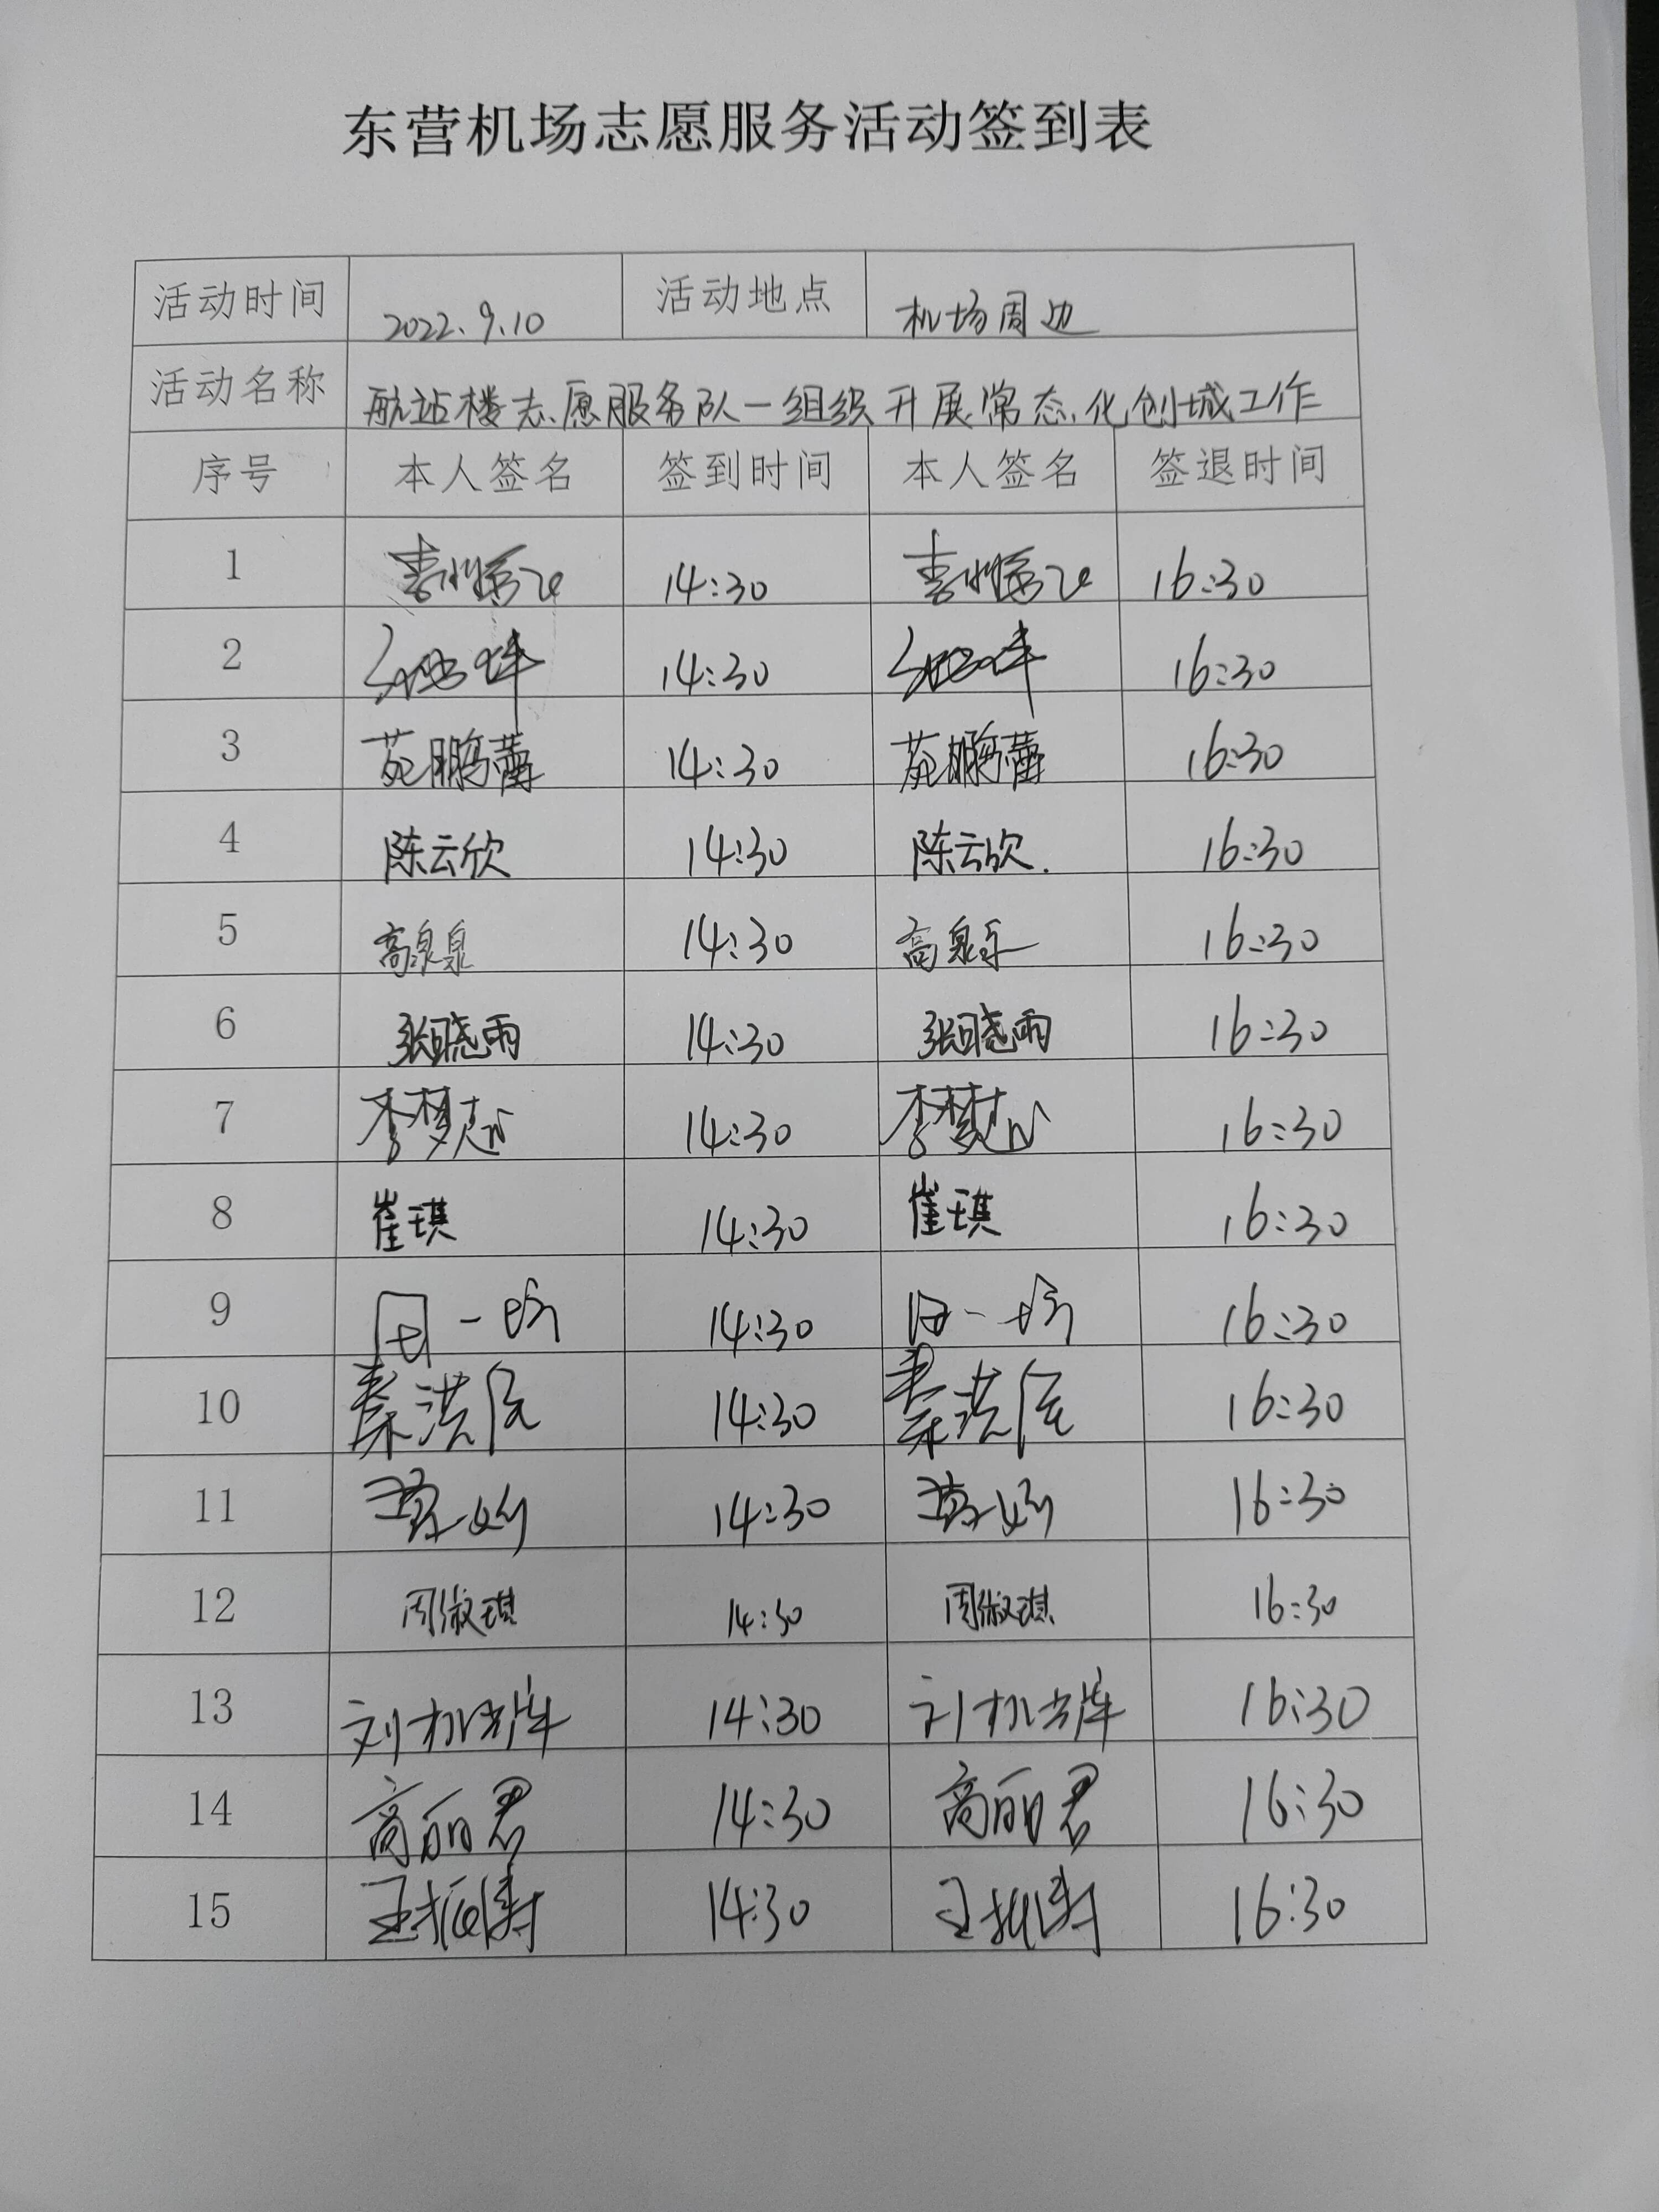 东营机场志愿服务活动签到表
活动时间 2022.9.10 活动地点 机场周边
活动名称 航站楼志愿服务队一组织开展常态化创城工作
序号 本人签名 签到时间 本人签名 签退时间
1 14:30 16:30
2 14:30 16:30
3 苑鹏蕾 14:30 苑鹏蕾 16:30
4 陈云欣 14:30 陈云欣. 16:30
5 高泉泉 14:30 高泉泉 16:30
6 张晓雨 14:30 张晓雨 16:30
7 李梦 14:30 李梦 16:30
8 崔琪 14:30 崔琪 16:30
9 14:30 16:30
10 秦洪 14:30 秦洪 16:30
11 14:30 16:30
12 周淑琪 14:30 周淑琪 16:30
13 刘 14:30 刘 16:30
14 高丽君 14:30 高丽君 16:30
15 王振涛 14:30 王振涛 16:30